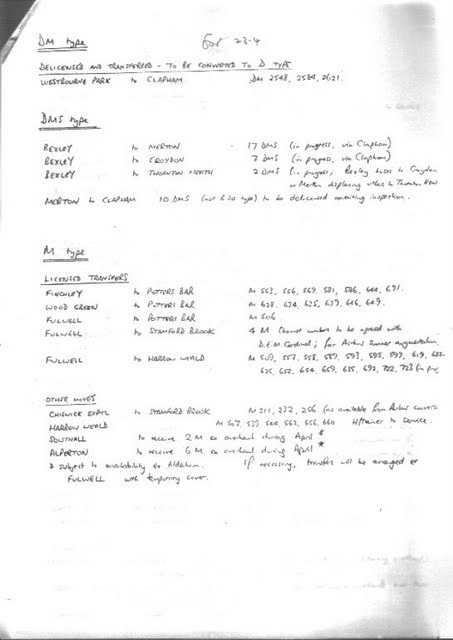 DM type for 23-4
DELICENSED AND TRANSFERRED - TO BE CONVERTED TO D TYPE
WESTBOURNE PARK to CLAPHAM DM 2548, 2584, 2621.
DMS type
BEXLEY to MERTON 17 DMS (in progress, via Clapham)
BEXLEY to CROYDON 7 DMS (in progress, via Clapham)
BEXLEY to THORNTON HEATH 2 DMS (in progress; Bexley buses to Croydon
or Merton displacing others to Thornton Heath
MERTON to CLAPHAM 10 DMS (not B20 type) to be delicensed awaiting inspection.
M type
LICENSED TRANSFERS
FINCHLEY to POTTERS BAR M 553, 556, 569, 581, 586, 644, 691.
WOOD GREEN to POTTERS BAR M 628, 634, 635, 639, 646, 649.
FULWELL to POTTERS BAR M 506
FULWELL to STAMFORD BROOK 4 M Chosen numbers to be agreed with
D.E.M Cardinal; for Airbus Summer augmentation.
FULWELL to HARROW WEALD M 509, 557, 558, 587, 593, 595, 599, 619, 622
625, 652, 654, 659, 685, 692, 722, 723 (in prog
OTHER MOVES
CHISWICK EXPTL to STAMFORD BROOK M 211, 232, 256 (as available from Airbus convers
HARROW WEALD M 507, 539, 544, 562, 656, 660 H/Trainer to service.
SOUTHALL to receive 2 M ex overhaul during April *
ALPERTON to receive 6 M ex overhaul during April *
* subject to availability ex Aldenham. If necessary, transfers will be arranged ex
FULWELL with temporary cover.